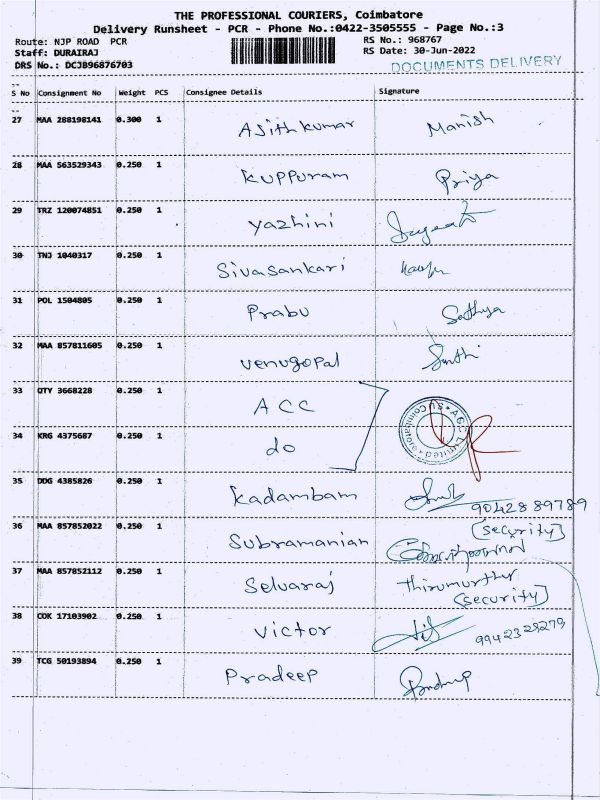 THE PROFESSIONAL COURIERS, Coimbatore
Delivery Runsheet - PCR - Phone No.:0422-3505555 - Page No.:3
Route: NJP ROAD PCR RS No.: 968767
Staff: DURAIRAJ RS Date: 30-Jun-2022
DRS No.: DCJB96876703 DOCUMENTS DELIVERY
S No Consignment No Weight PCS Consignee Details Signature
27 MAA 288198141 0.300 1 Ajithkumar Manish
28 MAA 563529343 0.250 1 Kuppuram Priya
29 TRZ 120074851 0.250 1 Yazhini
30 TNJ 1040317 0.250 1 Sivasankari
31 POL 1504805 0.250 1 Prabu Sathya
32 MAA 857811605 0.250 1 Venugopal
33 QTY 3668228 0.250 1 ACC
34 KRG 4375687 0.250 1 do
ACC Limited Coimbatore
35 DDG 4385826 0.250 1 Kadambam
9042889789
(security)
36 MAA 857852022 0.250 1 Subramanian
37 MAA 857852112 0.250 1 Selvaraj Thirumurthy
(security)
38 COK 17103902 0.250 1 Victor 9942328279
39 TCG 50193894 0.250 1 Pradeep